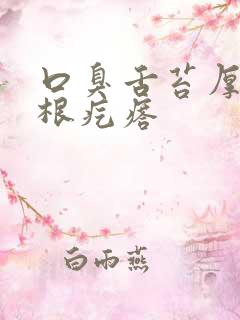 口臭舌苔厚
根疙瘩
白雨燕